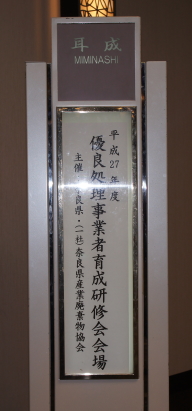 耳成
MIMINASHI
平成27年度
優良処理事業者育成研修会会場
主催 奈良県・(一社)奈良県産業廃棄物協会